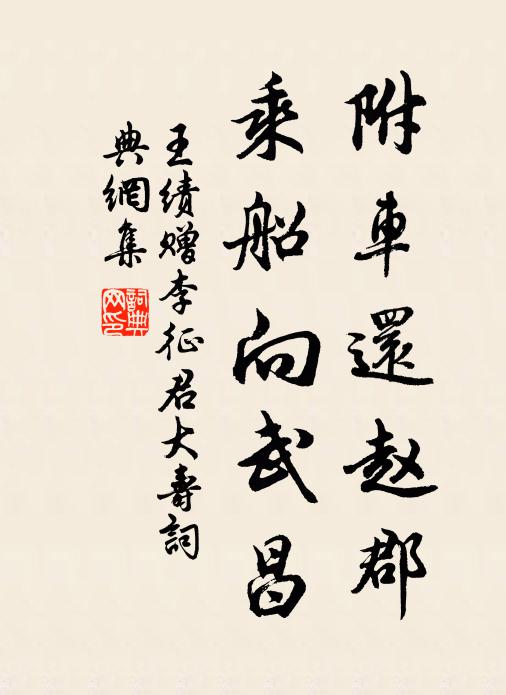 附車還赵郡
乘船向武昌
王绩赠李征君大壽詞
典網集
詞典
网印